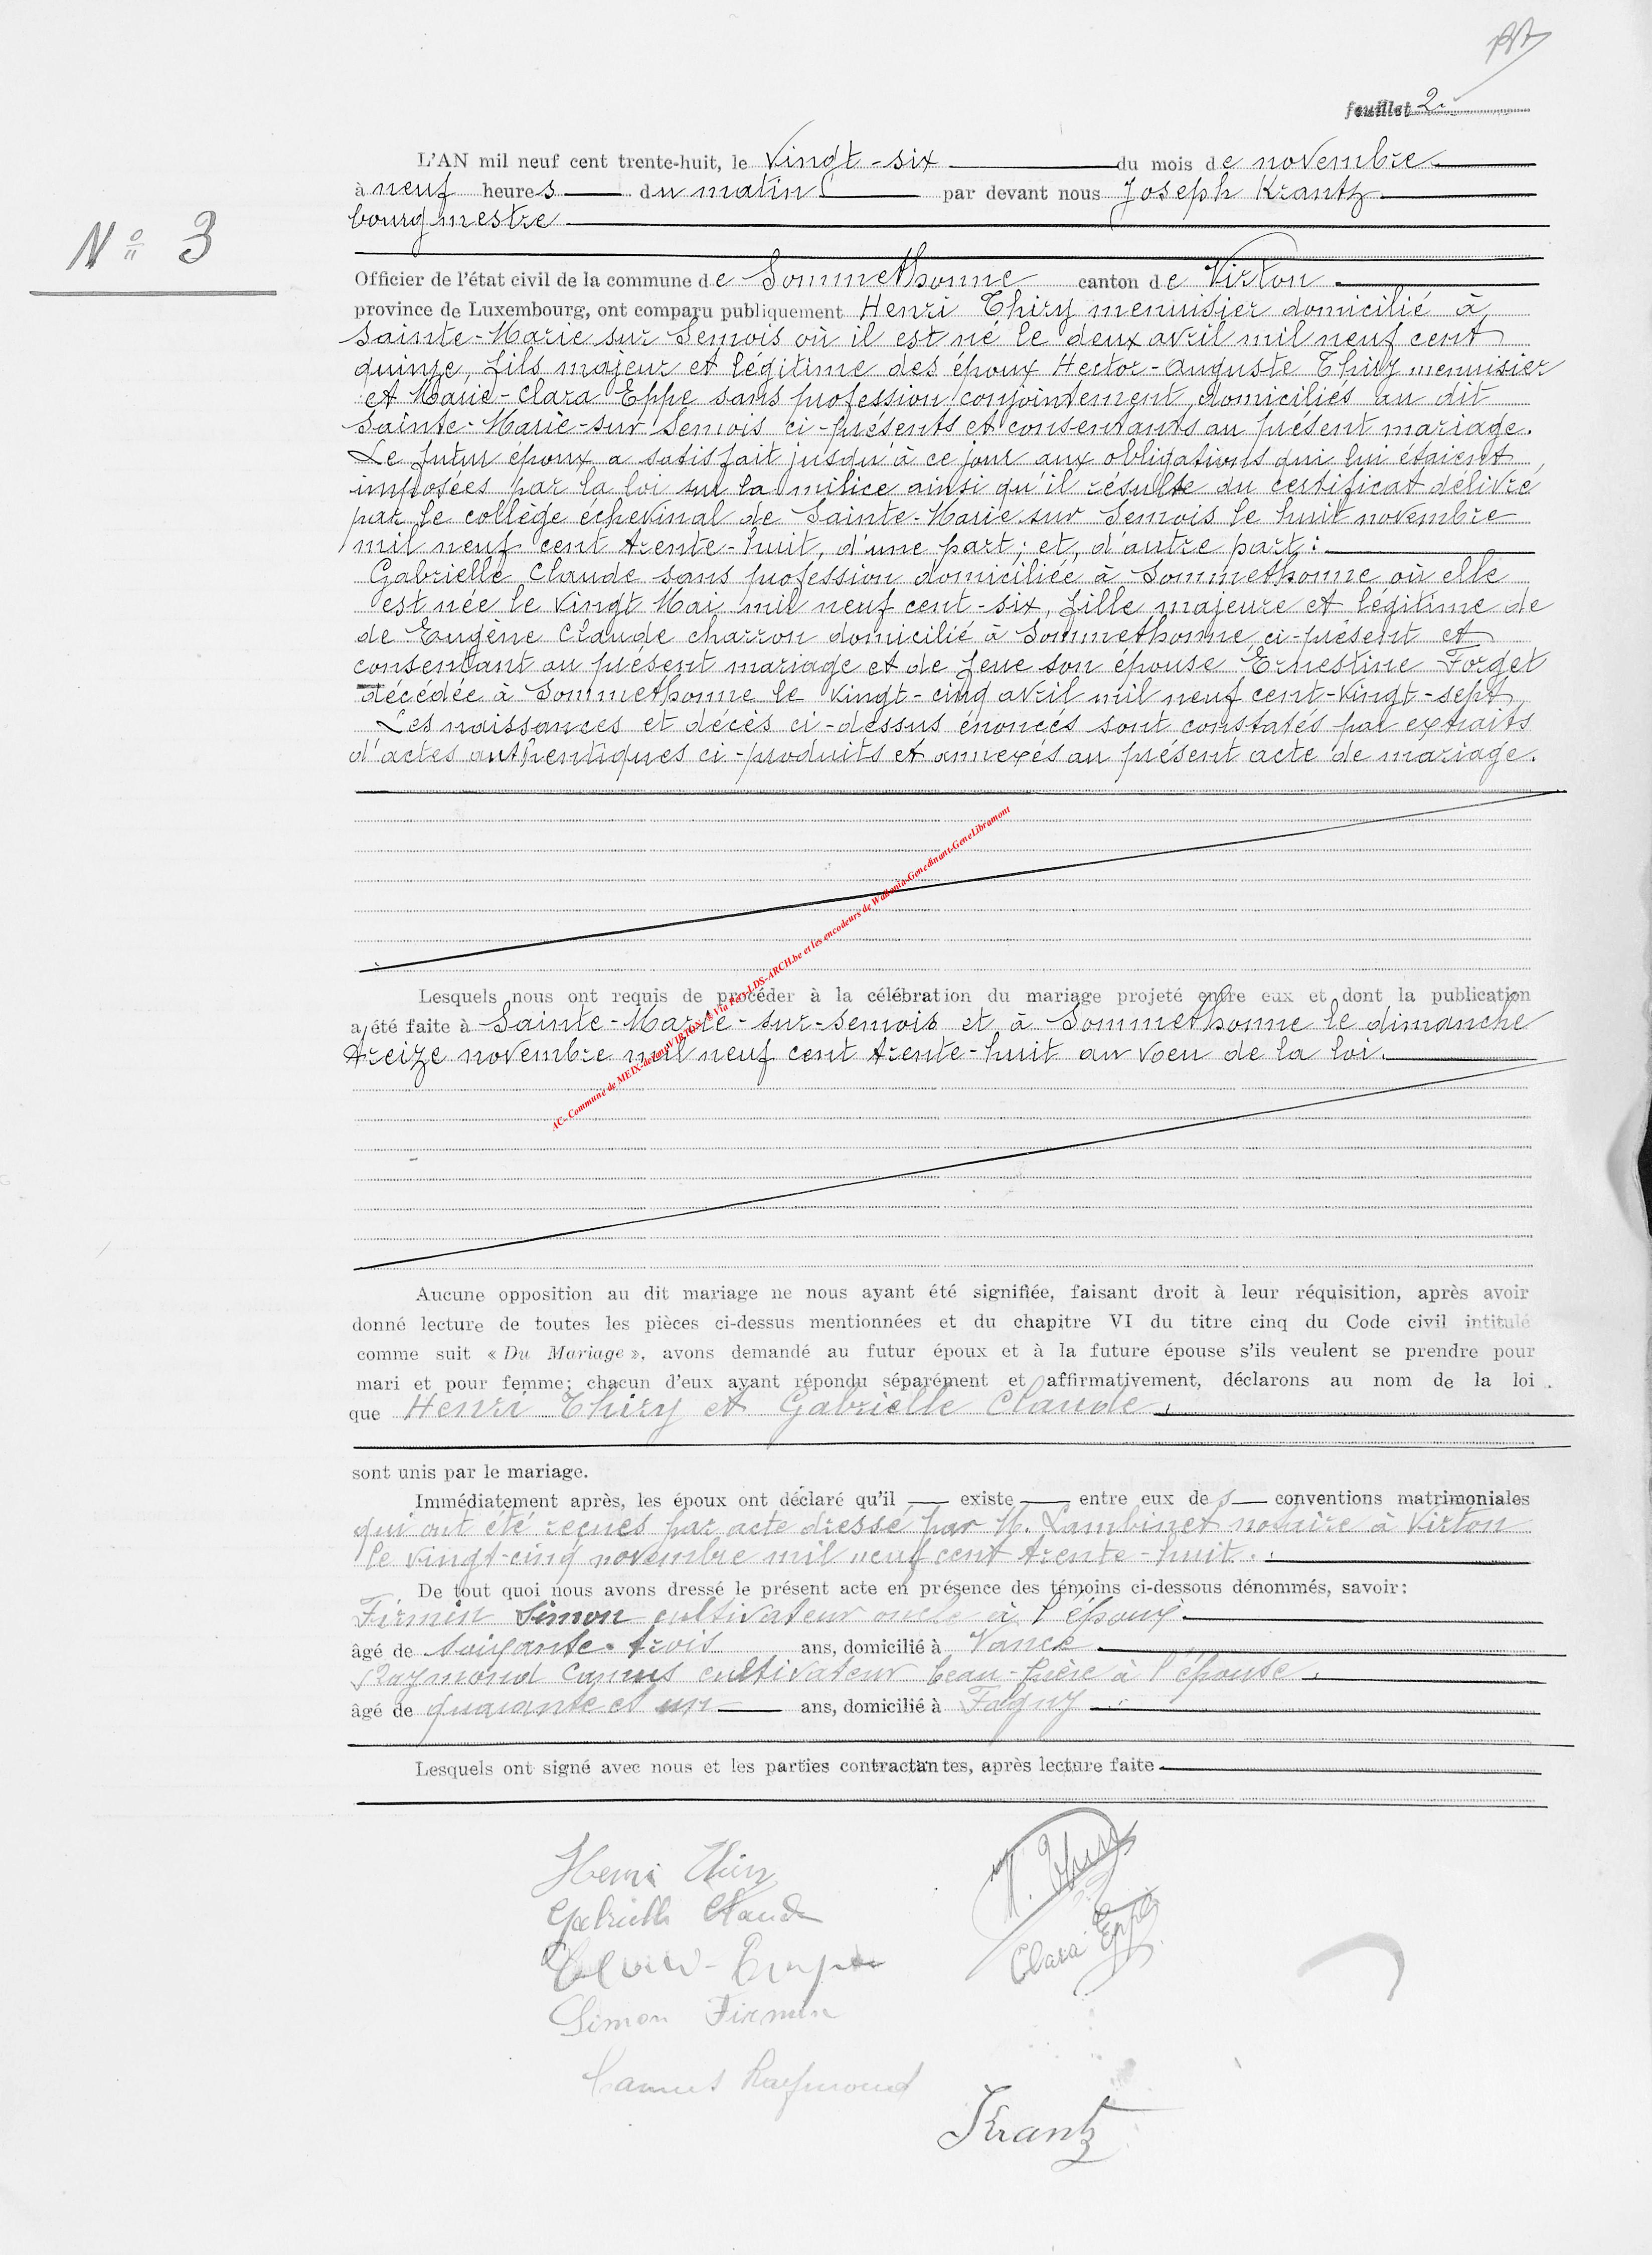 feuillet 2
L'AN mil neuf cent trente-huit, le vingt-six du mois de novembre
à neuf heures du matin par devant nous Joseph Krantz
bourgmestre
N° 3
Officier de l'état civil de la commune de Sommethonne canton de Virton
province de Luxembourg, ont comparu publiquement Henri Thiry menuisier domicilié à
Sainte-Marie sur Semois où il est né le deux avril mil neuf cent
quinze, fils majeur et légitime des époux Hector-Auguste Thiry menuisier
et Marie-Clara Eppe sans profession conjointement domiciliés au dit
Sainte-Marie-sur Semois ci-présents et consentants au présent mariage.
Le futur époux a satisfait jusqu'à ce jour aux obligations qui lui étaient
imposées par la loi sur la milice ainsi qu'il résulte du certificat délivré
par le collège échevinal de Sainte-Marie sur Semois le huit novembre
mil neuf cent trente-huit, d'une part; et, d'autre part:
Gabrielle Claude sans profession domiciliée à Sommethonne où elle
est née le vingt Mai mil neuf cent-six, fille majeure et légitime de
de Eugène Claude charron domicilié à Sommethonne, ci-présent et
consentant au présent mariage et de feue son épouse Ernestine Forget
décédée à Sommethonne le vingt-cinq avril mil neuf cent-vingt-sept
Les naissances et décès ci-dessus énoncés sont constatés par extraits
d'actes authentiques ci-produits et annexés au présent acte de mariage.
AC-Commune de MEIX-devant-VIRTON Via FS-LDS-ARCH.be et les encodeurs de Wallonia-Genedinant-GeneLibramont
Lesquels nous ont requis de procéder à la célébration du mariage projeté entre eux et dont la publication
a été faite à Sainte-Marie-sur-Semois et à Sommethonne le dimanche
treize novembre mil neuf cent trente-huit au voeu de la loi.
Aucune opposition au dit mariage ne nous ayant été signifiée, faisant droit à leur réquisition, après avoir
donné lecture de toutes les pièces ci-dessus mentionnées et du chapitre VI du titre cinq du Code civil intitulé
comme suit « Du Mariage », avons demandé au futur époux et à la future épouse s'ils veulent se prendre pour
mari et pour femme; chacun d'eux ayant répondu séparément et affirmativement, déclarons au nom de la loi
que Henri Thiry et Gabrielle Claude,
sont unis par le mariage.
Immédiatement après, les époux ont déclaré qu'il existe entre eux des conventions matrimoniales
qui ont été reçues par acte dressé par M. Lambinet notaire à Virton
le vingt-cinq novembre mil neuf cent trente-huit.
De tout quoi nous avons dressé le présent acte en présence des témoins ci-dessous dénommés, savoir:
Firmin Simon cultivateur oncle à l'époux
âgé de soixante-trois ans, domicilié à Vance
Raymond Camus cultivateur beau-frère à l'épouse
âgé de quarante et un ans, domicilié à Fagny
Lesquels ont signé avec nous et les parties contractantes, après lecture faite
Henri Thiry
H. Thiry
Gabrielle Claude
Clara Eppe
Simon Firmin
Camus Raymond
Krantz